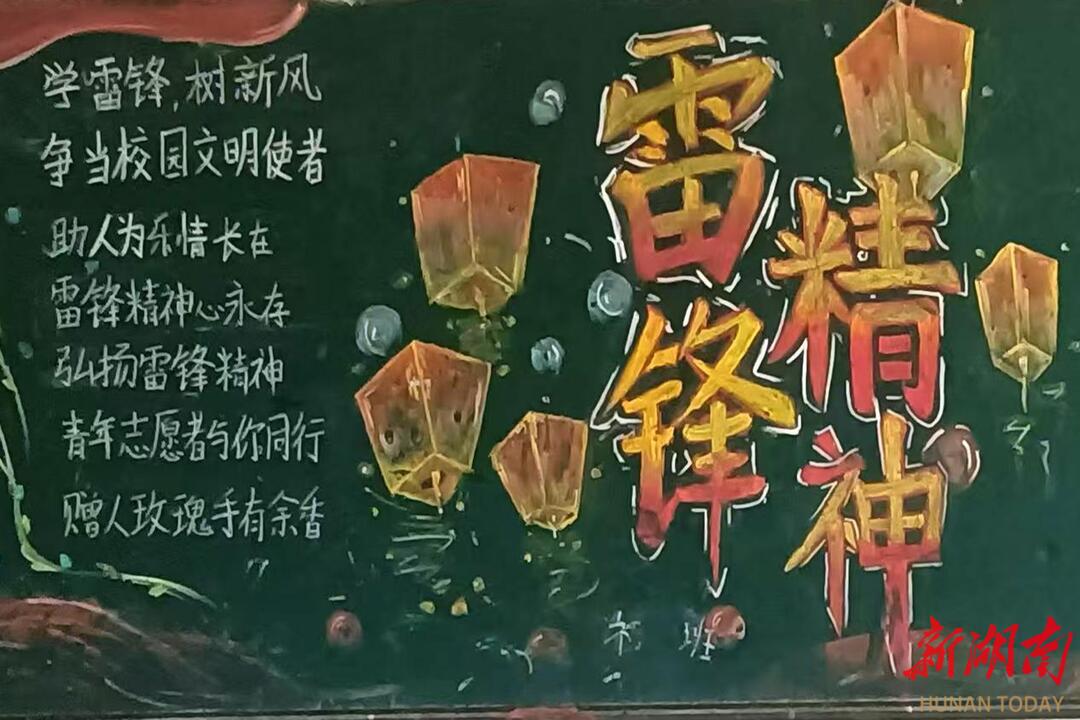 学雷锋,树新风
争当校园文明使者
助人为乐情长在
雷锋精神心永存
弘扬雷锋精神
青年志愿者与你同行
赠人玫瑰手有余香
雷锋
精神
班
新湖南
HUNAN TODAY